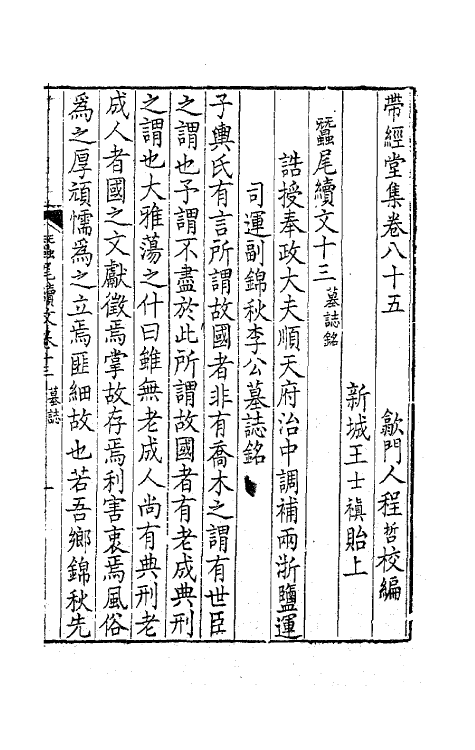 帶經堂集卷八十五　歙門人程哲校編
新城王士禛貽上
蠶尾續文十三 墓誌銘
誥授奉政大夫順天府治中調補兩浙鹽運
司運副錦秋李公墓誌銘
子輿氏有言所謂故國者非有喬木之謂有世臣
之謂也予謂不盡於此所謂故國者有老成典刑
之謂也大雅蕩之什曰雖無老成人尚有典刑老
成人者國之文獻徵焉掌故存焉利害衷焉風俗
爲之厚頑懦爲之立焉匪細故也若吾鄉錦秋先
蠶尾續文卷十三 墓誌 一